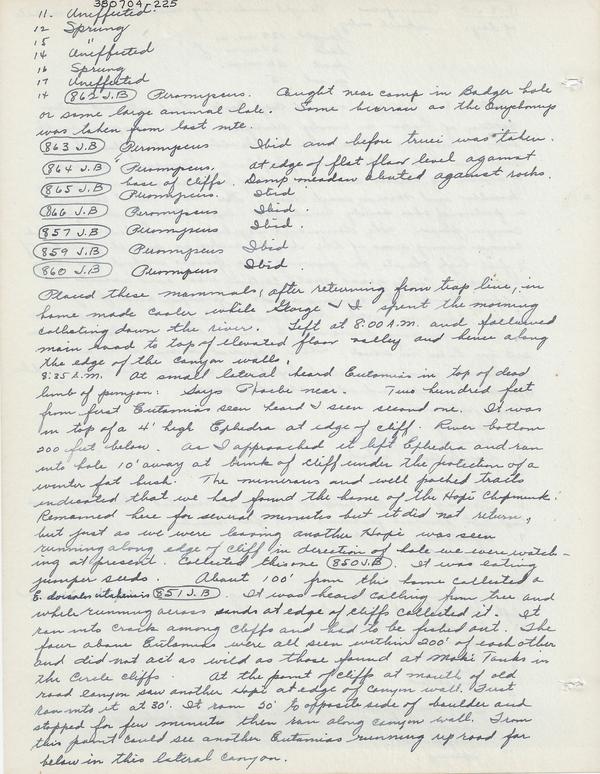 380704-225
11. Uneffected.
12 Sprung
15 "
14 Uneffected
16 Sprung
17 Uneffected
14 (862 J.B) Peromyscus. Caught near camp in Badger hole
or some large animal hole. Same burrow as the Onychomys
was taken from last nite.
(863 J.B) Peromyscus Ibid and before truei was taken.
(864 J.B) Peromyscus. at edge of flat floor level against
base of cliffs. Damp meadow abuted against rocks.
(865 J.B) Peromyscus. Ibid
(866 J.B) Peromyscus Ibid.
(857 J.B) Peromyscus Ibid.
(859 J.B) Peromyscus Ibid
(860 J.B) Peromyscus Ibid.
Placed these mammals, after returning from trap line, in
home made cooler while George & I spent the morning
collecting down the river. Left at 8:00 A.M. and followed
main road to top of elevated floor valley and hence along
the edge of the canyon walls.
8:35 A.M. At small lateral heard Eutamias in top of dead
limb of punyon: Says Phoebe near. Two hundred feet
from first Eutamias seen heard & seen second one. It was
in top of a 4' high Ephedra at edge of cliff. River bottom
200 feet below. As I approached it left Ephedra and ran
into hole 10' away at brink of cliff under the protection of a
winter fat bush. The numerous and well packed tracts
indicated that we had found the home of the Hopi Chipmunk.
Remained here for several minutes but it did not return,
but just as we were leaving another Hopi was seen
running along edge of cliff in direction of hole we were watch-
ing at present. Collected this one (850 J.B). It was eating
juniper seeds. About 100' from this home collected a
E. dorsalis utahensis (851 J.B). It was heard calling from tree and
while running across sands at edge of cliffs collected it. It
ran into crack among cliffs and had to be fished out. The
four above Eutamias were all seen within 200' of each other
and did not act as wild as those found at Moki Tanks in
the Circle cliffs. At the point of cliffs at mouth of old
road canyon saw another Hopi at edge of canyon wall. First
ran into it at 30'. It ran 50' to opposite side of boulder and
stopped for few minutes then ran along canyon wall. From
this point could see another Eutamias running up road far
below in this lateral canyon.